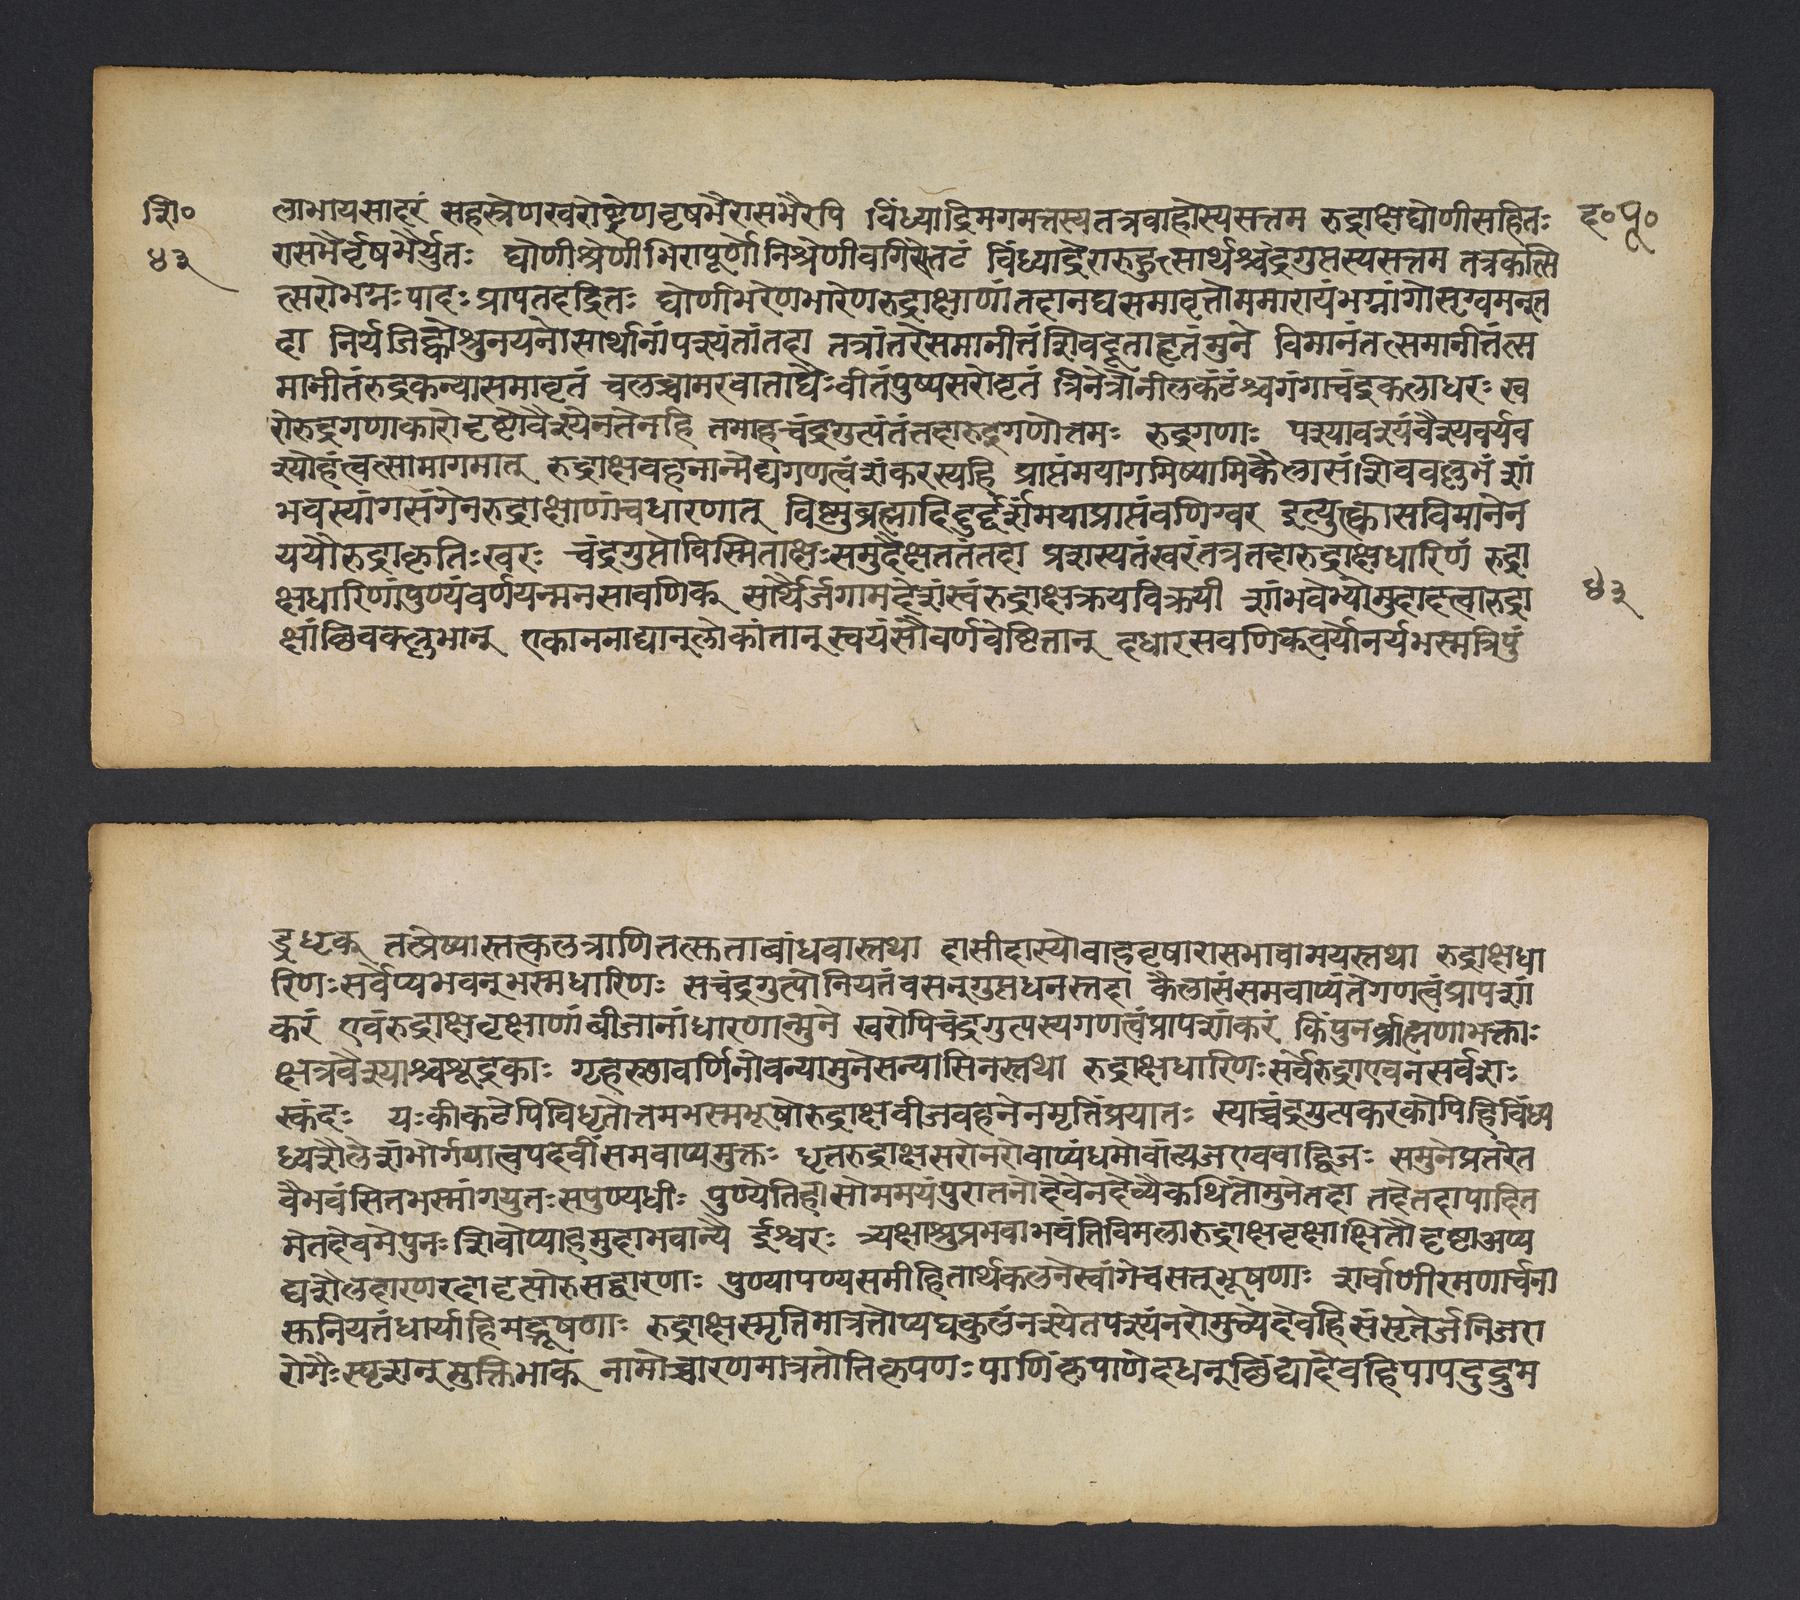 शि०
४३
लाभायसादरं सहस्रेणखरोष्ट्रेणवृषभैरासभैरपि विंध्याद्रिमगमत्तस्यतत्रवाहोस्यसत्तम रुद्राक्षघोणीसहितः
ह०पू०
रासभैर्वृषभैर्युतः घोणीश्रेणीभिरापूर्णोनिश्रेणीवगिरेस्तटं विंध्याद्रेरारुहत्सार्थश्चंद्रगुप्तस्यसत्तम तत्रकत्सि
त्सरोभग्नःपादःप्रापतदद्रितः घोणीभरेणभारेणरुद्राक्षाणांतदानघसमावृत्तोममारायंभग्नांगोसृग्वमन्त
दा निर्यजिह्वोश्रुनयनोसार्थानांपश्यतांतदा तत्रांतरेसमानीतंशिवदूताहृतंमुने विमानंतत्समानीतंत्स
मानीतंरुद्रकन्यासमावृतं चलच्चामरवाताद्यैःवीतंपुष्पसरोवृतं त्रिनेत्रोनीलकंठश्चगंगाचंद्रकलाधरः ख
रोरुद्रगणाकारोदृष्टोवैश्येनतेनहि तमाहचंद्रगुप्तंतंतदारुद्रगणोतमः रुद्रगणाः पश्यावश्यंवैश्यवर्यव
श्योहंत्वत्सामागमात् रुद्राक्षवहनान्मेद्यगणत्वंशंकरस्यहि प्राप्तंमयागमिष्यामिकैलासंशिववल्लभं शां
भवस्यांगसंगेनरुद्राक्षाणांचधारणात् विष्णुब्रह्मादिदुर्द्दर्शंमयाप्राप्तंवणिग्वर इत्युत्क्वासविमानेन
ययौरुद्राकृतिःखरः चंद्रगुप्तोविस्मिताक्षःसमुदैक्षततंतदा प्रशस्यतंखरंतत्रतदारुद्राक्षधारिणं रुद्रा
क्षधारिणांपुण्यंवर्णयन्मनसावणिक् सार्थैर्जगामदेशंस्वंरुद्राक्षक्रयविक्रयी शांभवेभ्योमुदादत्वारुद्रा
४३
क्षांछिवकल्लभान् एकाननाद्यान्लोकांतान् स्वयंसौवर्णवेष्टितान् दधारसवणिक्वर्योनर्यभस्मत्रिपुं
ड्रधृक् तत्प्रेष्यास्तत्कलत्राणितत्सुताबांधवास्तथा दासीदास्योवाहवृषारासभावामयस्तथा रुद्राक्षधा
रिणःसर्वेप्यभवन्भस्मधारिणः सचंद्रगुप्तोनियतंवसन्गुप्तधनस्तदा कैलासंसमवाप्यंतेगणत्वंप्रापशां
करं एवंरुद्राक्षवृक्षाणांबीजानांधारणान्मुने खरोपिचंद्रगुप्तस्यगणत्वंप्रापशांकरं किंपुनर्ब्राह्मणाभक्ताः
क्षत्रवैश्याश्चशूद्रकाः गृहस्छावर्णिनोवन्यामुनेसन्यासिनस्तथा रुद्राक्षधारिणःसर्वेरुद्राएवनसर्वशः
स्कंदः यःकीकटेपिविधृतोत्तमभस्मभूषोरुद्राक्षबीजवहनेनमृतिंप्रयातः स्याच्चंद्रगुप्तकरकोपिहिविंध्य
ध्यशैलेशंभोर्गयात्वपदवींसमवाप्यमुक्तः धृतरुद्राक्षसरोनरोवाप्यंधमोवांत्यजएववाद्विजः समुनेप्रतरेत
वैभवंसितभस्मांगयुतःसपुण्यधीः पुण्येतिहासोममयंपुरातनोदेवेनदेव्यैकथितोमुनेतदा तदेतदापादित
मेतदेवमेपुनःशिवोप्याहमुदाभवान्यै ईश्वरः त्र्यक्षाश्रुप्रभवाभवंतिविमलारुद्राक्षवृक्षाक्षितौदृष्टाअप्य
घशैलदारणरदादृसोरुसद्वारणाः पुण्यापण्यसमीहितार्थकलनेस्वांगेचसत्भूषणाः शर्वाणीरमणार्चना
स्तनियतंधार्याहिमद्भूषणाः रुद्राक्षस्मृतिमात्रतोप्यघकुलंनश्येतपश्यंनरोमुच्येदेवहिसंसृतेर्जनिजरा
रोगैःस्पृशन्मुक्तिभाक् नामोच्चारणमात्रतोतिकृपणःपाणिंकृपाणेदधन्छिंद्यादेवहिपापदुद्रुम